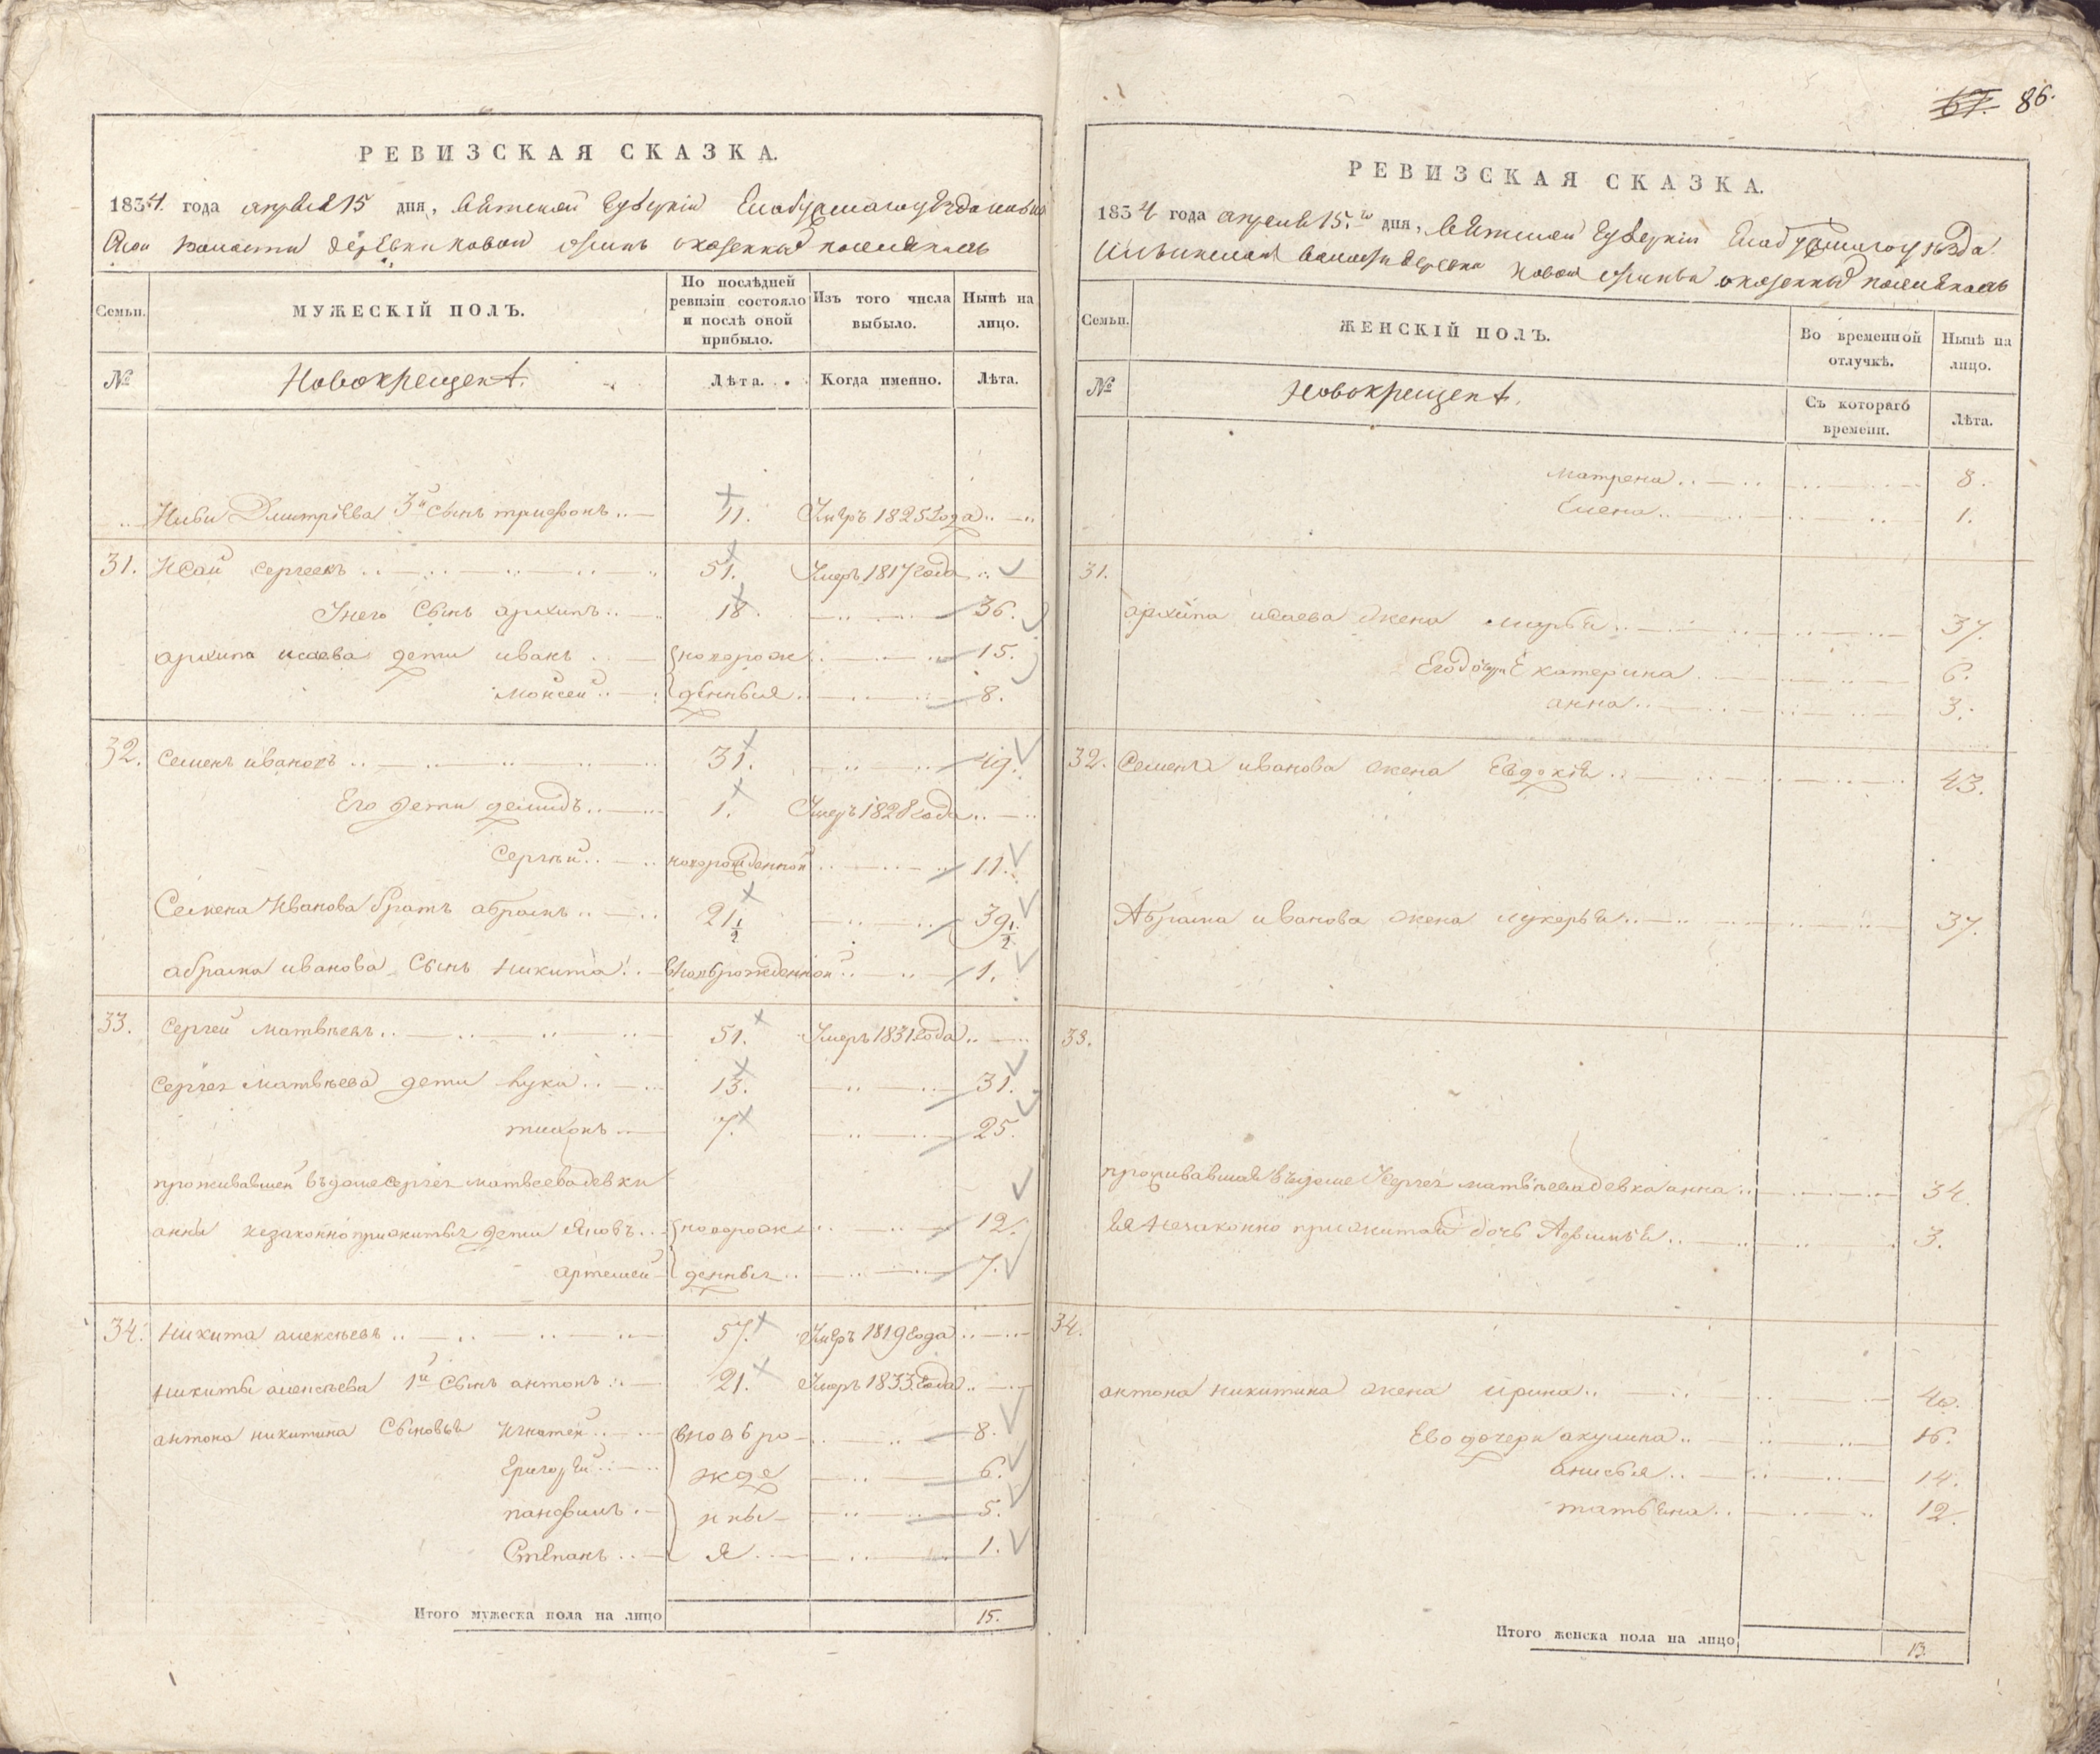 РЕВИЗСКАЯ СКАЗКА.
1834. года апреля 15 дня, Вятской Губернїи Елабужскаго уѣзда
волости деревни новой о казенныхъ поселянахъ
Семьи. МУЖЕСКІЙ ПОЛЪ. По послѣдней ревизіи состояло и послѣ оной прибыло. Изъ того числа выбыло. Нынѣ на лицо.
№ Новокрещенъ. Лѣта. Когда именно. Лѣта.
Дмитрїева 3й сынъ трифонъ 11. Умеръ 1825 года
31. Исай сергеевъ 51. Умеръ 1817 года
Унего сынъ архипъ 18. 36.
архипа исаева дети иванъ новорож 15.
Мойсей денныя 8.
32. Семенъ ивановъ 31. 49.
Его дети демидъ 1. Умеръ 1828 года
Сергѣй новорожденной 11.
Семена Иванова братъ абрамъ 21 1/2 39 1/2
абрама иванова сынъ никита вновьрожденной 1.
33. Сергей матвѣевъ 51. Умеръ 1831 года
Сергея Матвѣева дети лука 13. 31.
тихонъ 7. 25.
проживавшей въ доме сергея матвеева девки
анны незаконно прижитыя дети яковъ новорож 12.
артемей денныя 7.
34. Никита алексѣевъ 57. Умеръ 1819 года
никиты алексѣева 1й сынъ антонъ 21. Умеръ 1833 года
антона никитина сыновья Игнатей вновь ро 8.
Григорей жде 6.
панфилъ нны 5.
Степанъ я 1.
Итого мужеска пола на лицо 15.
67. 86.
РЕВИЗСКАЯ СКАЗКА.
1834 года апреля 15.го дня, Вятской Губернїи Елабужскаго уѣзда
Ильинской волости деревни новой о казенныхъ поселянахъ
Семьи. ЖЕНСКІЙ ПОЛЪ. Во временной отлучкѣ. Нынѣ на лицо.
№ Новокрещенъ. Съ котораго времени. Лѣта.
матрена 8.
Елена 1.
31.
архипа исаева жена марья 37.
Его дочери Екатерина 6.
анна 3.
32. Семена иванова жена Евдокїя 43.
Абрама иванова жена лукерья 37.
33.
проживавшая въ доме Сергея матвѣева девка анна 34
Ея незаконно прижитая дочь Афимья 3.
34.
антона никитина жена ирина 40.
Ево дочери акулина 16.
анисья 14.
татьяна 12.
Итого женска пола на лицо 13.